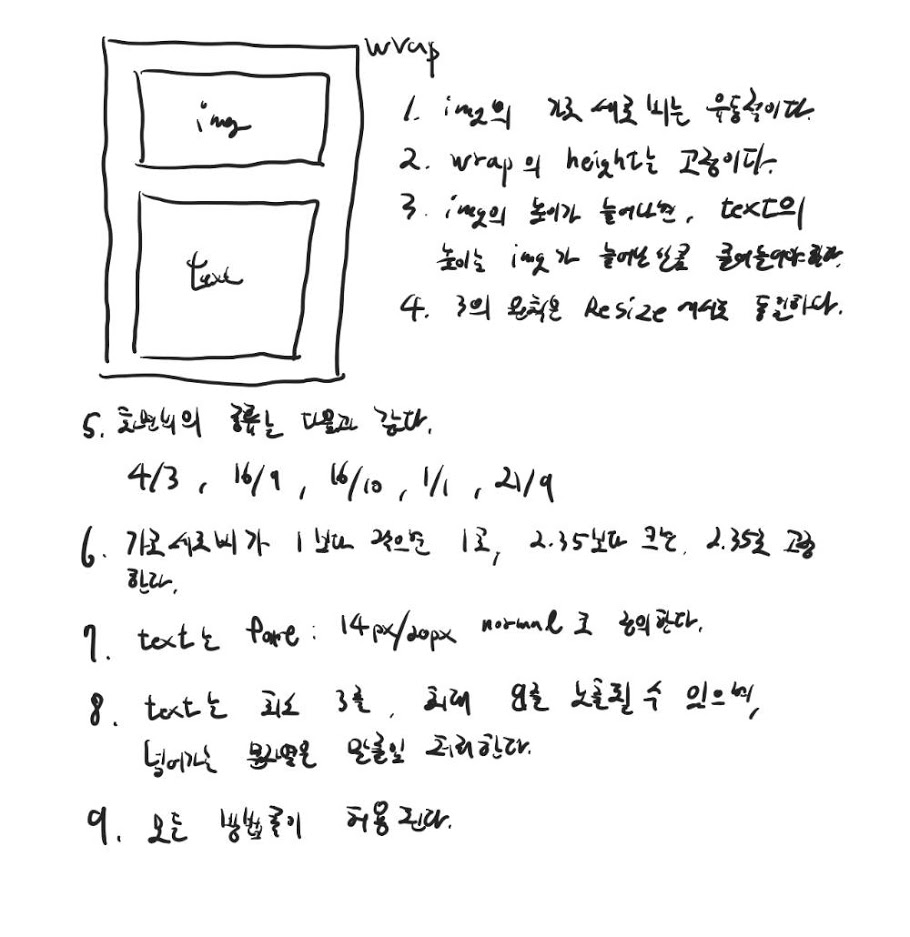 wrap
img
text
1. img의 가로 세로 비는 유동적이다.
2. wrap의 height는 고정이다.
3. img의 높이가 늘어나면, text의
높이는 img가 늘어난 만큼 줄어들어야 한다.
4. 3의 원칙은 Resize 에서도 동일하다.
5. 화면비의 종류는 다음과 같다.
4/3, 16/9, 16/10, 1/1, 21/9
6. 가로세로비가 1보다 작으면 1로, 2.35보다 크면, 2.35로 고정
한다.
7. text는 font: 14px/20px normal로 정의한다.
8. text는 최소 3줄, 최대 줄 노출될 수 있으며,
넘어가는 문자열은 말줄임 처리한다.
9. 모든 방법론이 허용된다.